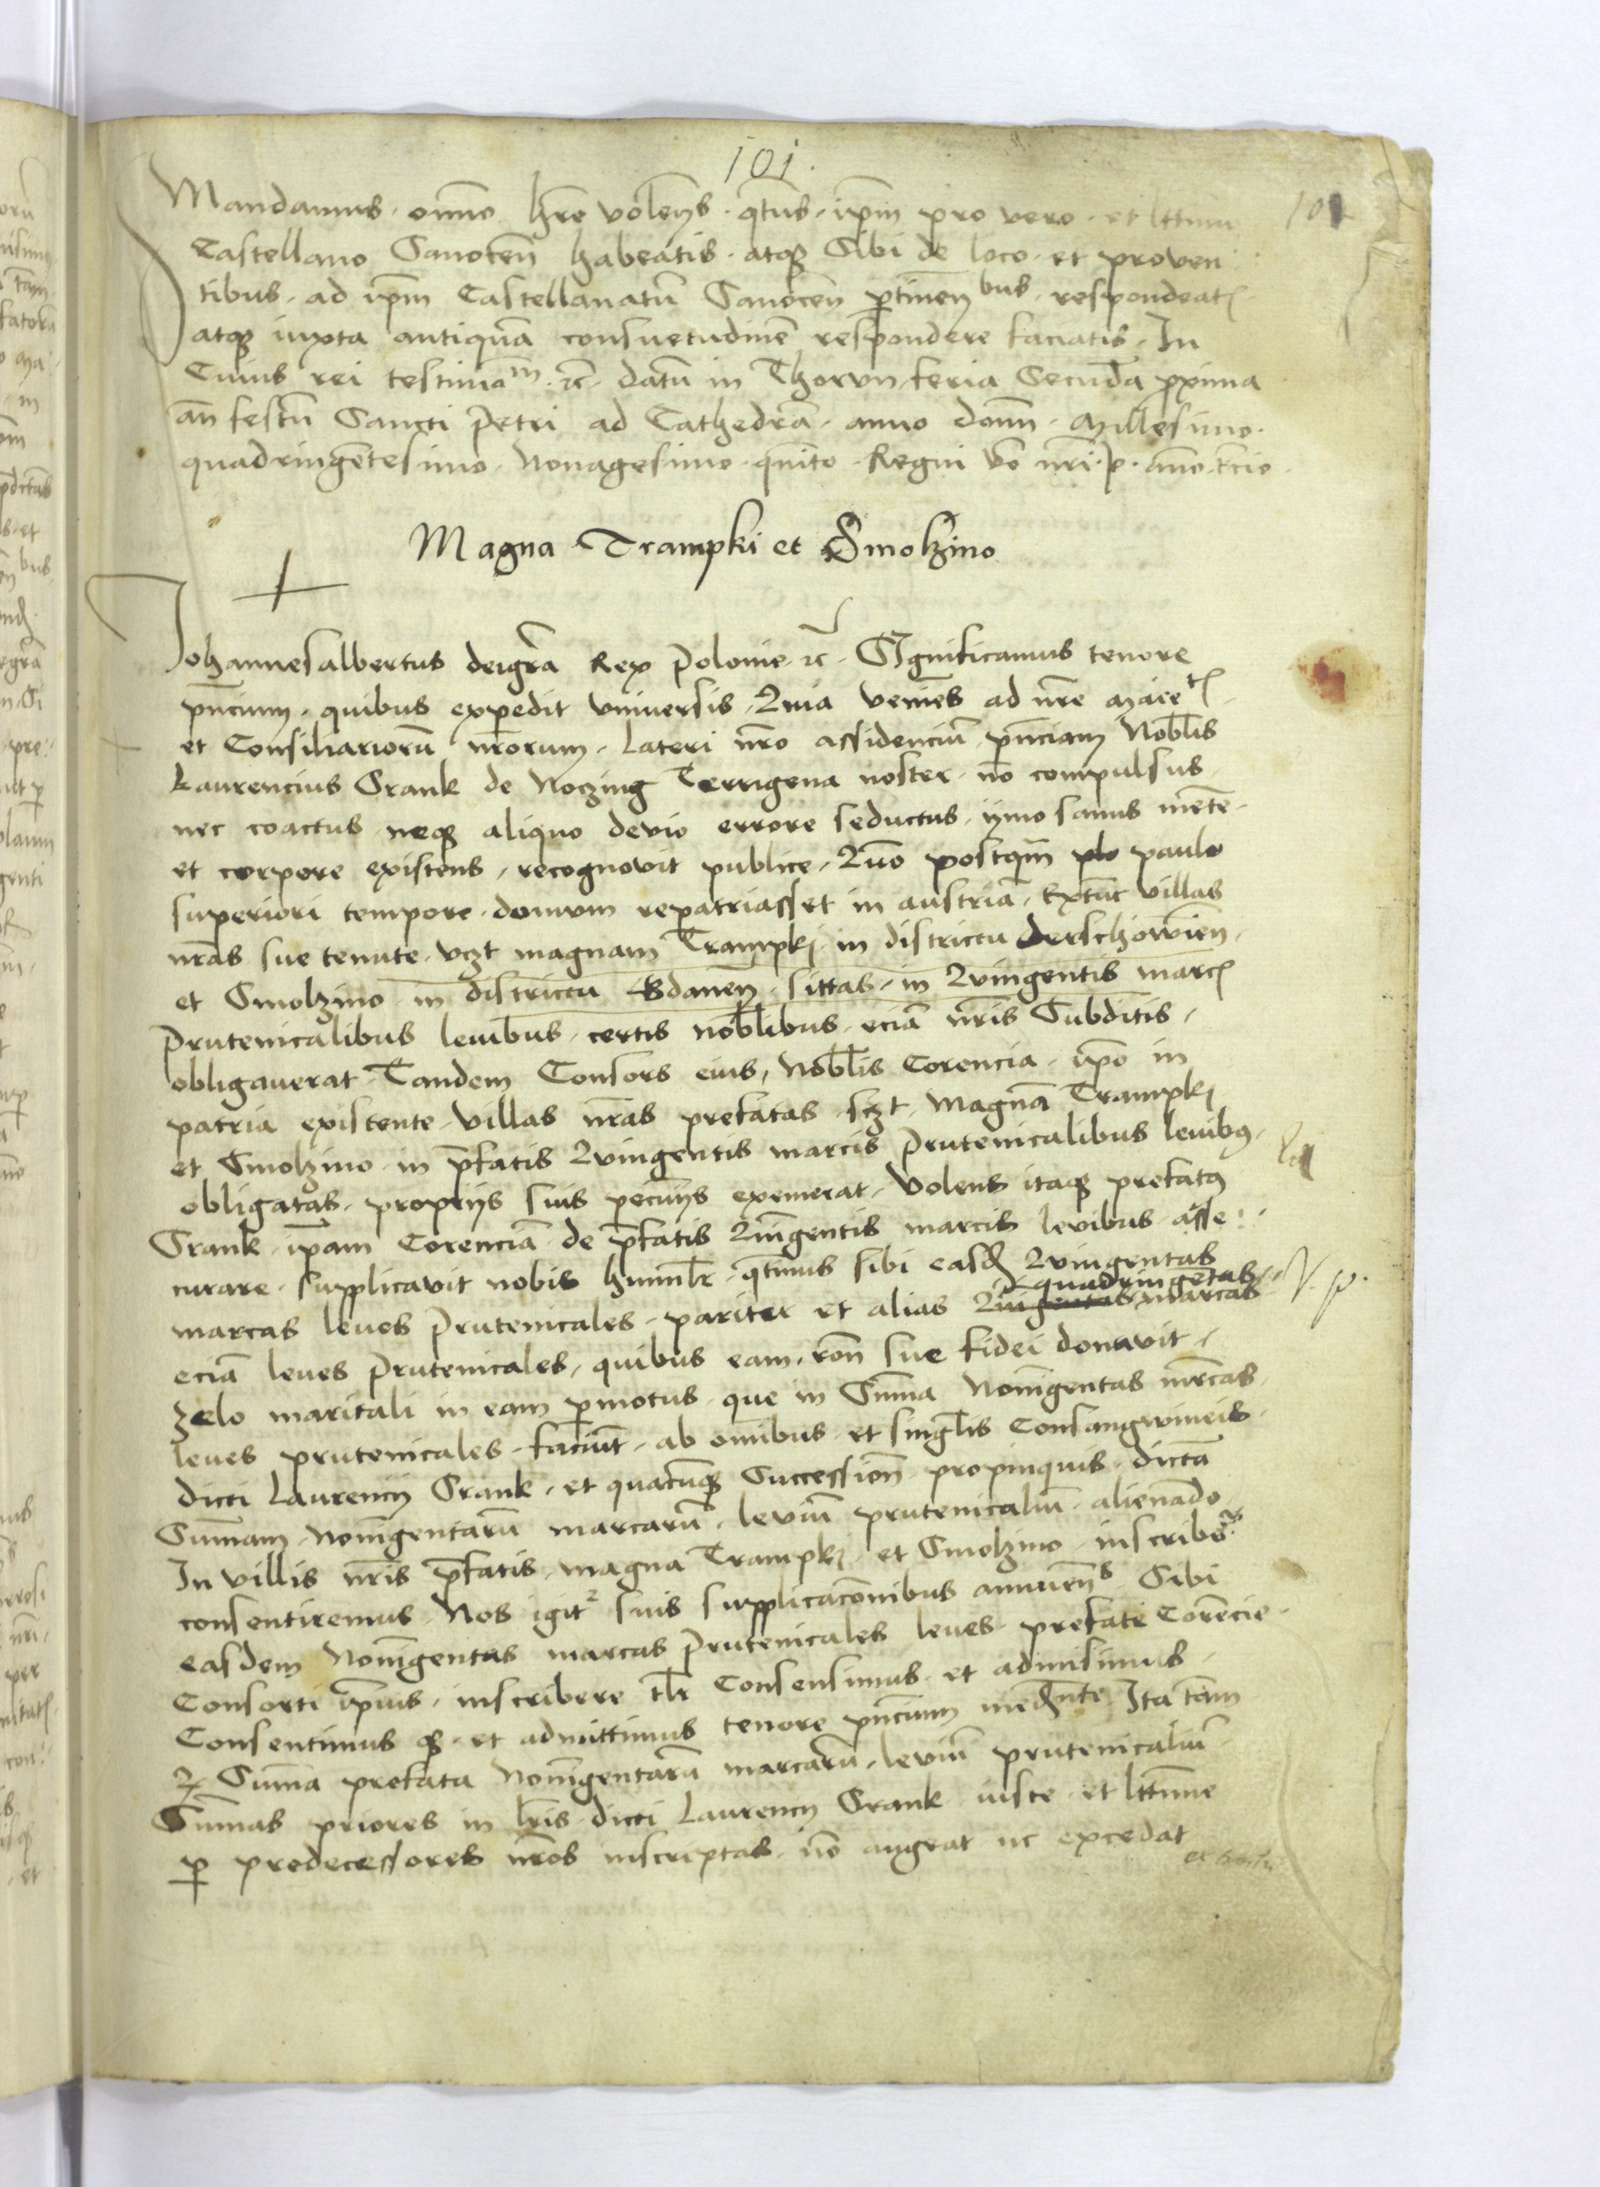 101.
101
Mandamus omnino hr̄e volen̄s qt̄nus ip̄m pro vero et lttimo
Castellano Sanoceñ habeatis atqʒ Sibi de loco et proven
tibus ad ip̄m Castellanatū Sanoceñ ptineñbus respondeatꝭ
atqʒ iuxta antiquā consuetudinē respondere faciatis. In
Cuius rei testimoᵐ ⁊c̄ datū in Thorvn feria Secūda p̄xima
añ festū Sancti Petri ad Cathedrā anno domⁿⁱ Millesimo
quadringētesimo Nonagesimo quīto Regni vō nr̄i anno t̄cio
Magna Trampki et Smolzino
Johannesalbertus deigrā Rex Polonie ⁊c̄ Significamus tenore
pn̄cium quibus expedit vniuersis Quia venies ad nr̄e Maieᵗꝭ
et Consiliariorū nr̄orum lateri nr̄o assidenciū pn̄ciam Nobl̄is
Laurencius Crank de Noczing Terrigena noster nō compulsus
nec coactus neqʒ aliquo devio errore seductus ymo sanus mēte
et corpore existens recognovit publice Quō postqm̄ plo paulo
superiori tempore domum repatriasset in austriā Extūc villas
nr̄as sue tenute vcʒt magnam Trampkj in districtu derschowieñ
et Smolzino in districtu Gdaneñ sittas in Quingentis marcꝭ
Prutenicalibus leuibus certis nobl̄ibus eciā nr̄is Subditis
obligauerat Tandem Consors eius Nobl̄is Corencia ip̄o in
patria existente villas nr̄as prefatas scʒt Magnā Trampkj
et Smolzino in p̄fatis Quingentis marcis Prutenicalibus leuibꝰ
obligatas proprijs suis pecunijs exemerat Volens itaqʒ prefatꝰ
Crank ip̄am Corenciā de p̄fatis Quīngentis marcis levibus asse
curare supplicavit nobis humilr̄ qt̄inus sibi easdꝭ Quingentas
quadringētas
marcas leues Prutenicales pariter et alias Quingentas marcas
V. p.
eciā leues Prutenicales quibus eam rōn sue fidei donavit
Zelo maritali in eam pmotus que in Sūma Nonīgentas mr̄cas
leues prutenicales faciūt ab omnibus et singl̄is Consangwineis
dicti Laurencij Crank et quacūqʒ Successioñ propinquis dictā
Summam Nonīgentarū marcarū leviū prutenicaliū alienādo
In villis nr̄is p̄fatis magna Trampkj et Smolzino inscribē
consentiremus Nos igitᵣ suis supplicacōnibus annueñs Sibi
easdem Nonīgentas marcas Prutenicales leues prefate Corēcie
Consorti ip̄ius inscribere Consensimus et admisimus
Consentimus qʒ et admittimus tenore pn̄cium medᵗⁿᵗᵉ Ita tam̄
ꝙ Summa prefata Nonīgentarū marcarū leviū prutenicaliū
Sūmas priores in lr̄is dicti Laurencij Crank iuste et lttimme
p predecessores nr̄os inscriptas nō augeat nc excedat